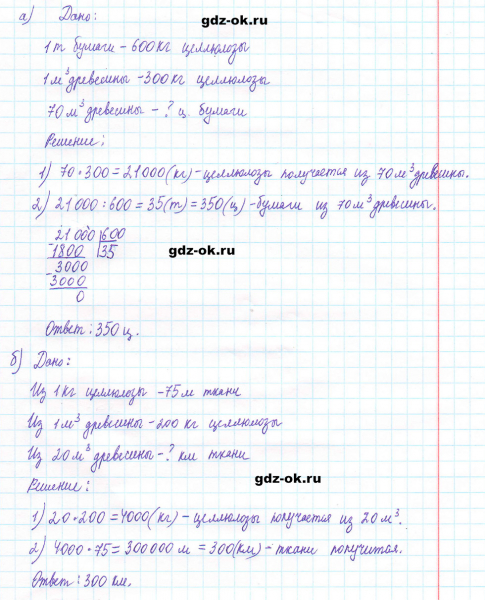 gdz-ok.ru
а) Дано:
1 т бумаги - 600 кг целлюлозы
1 м³ древесины - 300 кг целлюлозы
70 м³ древесины - ? ц. бумаги
Решение:
1) 70 · 300 = 21000 (кг) - целлюлозы получается из 70 м³ древесины.
2) 21000 : 600 = 35 (т) = 350 (ц) - бумаги из 70 м³ древесины.
21000 600
- 1800 35
3000
- 3000
0
gdz-ok.ru
Ответ: 350 ц.
б) Дано:
Из 1 кг целлюлозы - 75 м ткани
Из 1 м³ древесины - 200 кг целлюлозы
Из 20 м³ древесины - ? км ткани
gdz-ok.ru
Решение:
1) 20 · 200 = 4000 (кг) - целлюлозы получается из 20 м³.
2) 4000 · 75 = 300000 м = 300 (км) - ткани получится.
Ответ: 300 км.
gdz-ok.ru